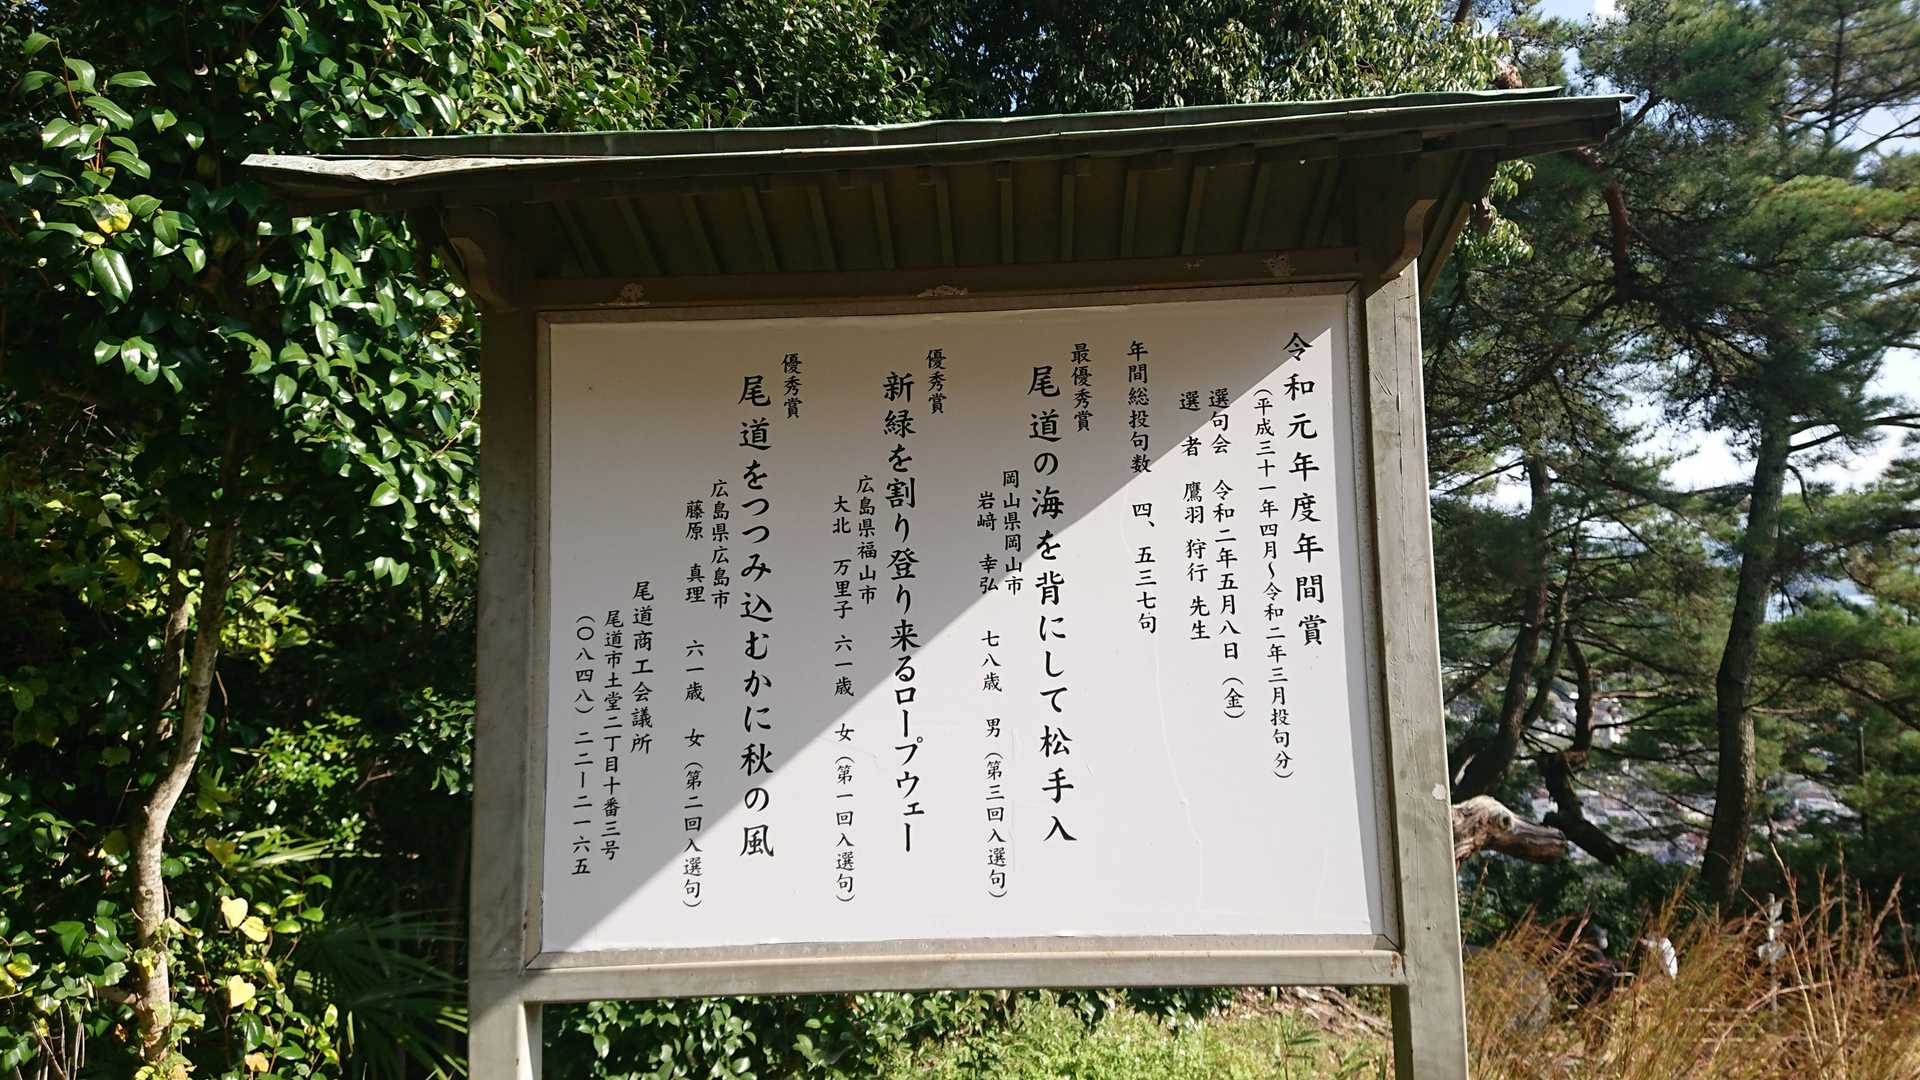 令和元年度年間賞
（平成三十一年四月～令和二年三月投句分）
選句会 令和二年五月八日（金）
選者 鷹羽 狩行 先生
年間総投句数 四、五三七句
最優秀賞
尾道の海を背にして松手入
岡山県岡山市
岩﨑 幸弘 七八歳 男（第三回入選句）
優秀賞
新緑を割り登り来るロープウェー
広島県福山市
大北 万里子 六一歳 女（第一回入選句）
優秀賞
尾道をつつみ込むかに秋の風
広島県広島市
藤原 真理 六一歳 女（第二回入選句）
尾道商工会議所
尾道市土堂二丁目十番三号
（〇八四八）二二ー二一六五